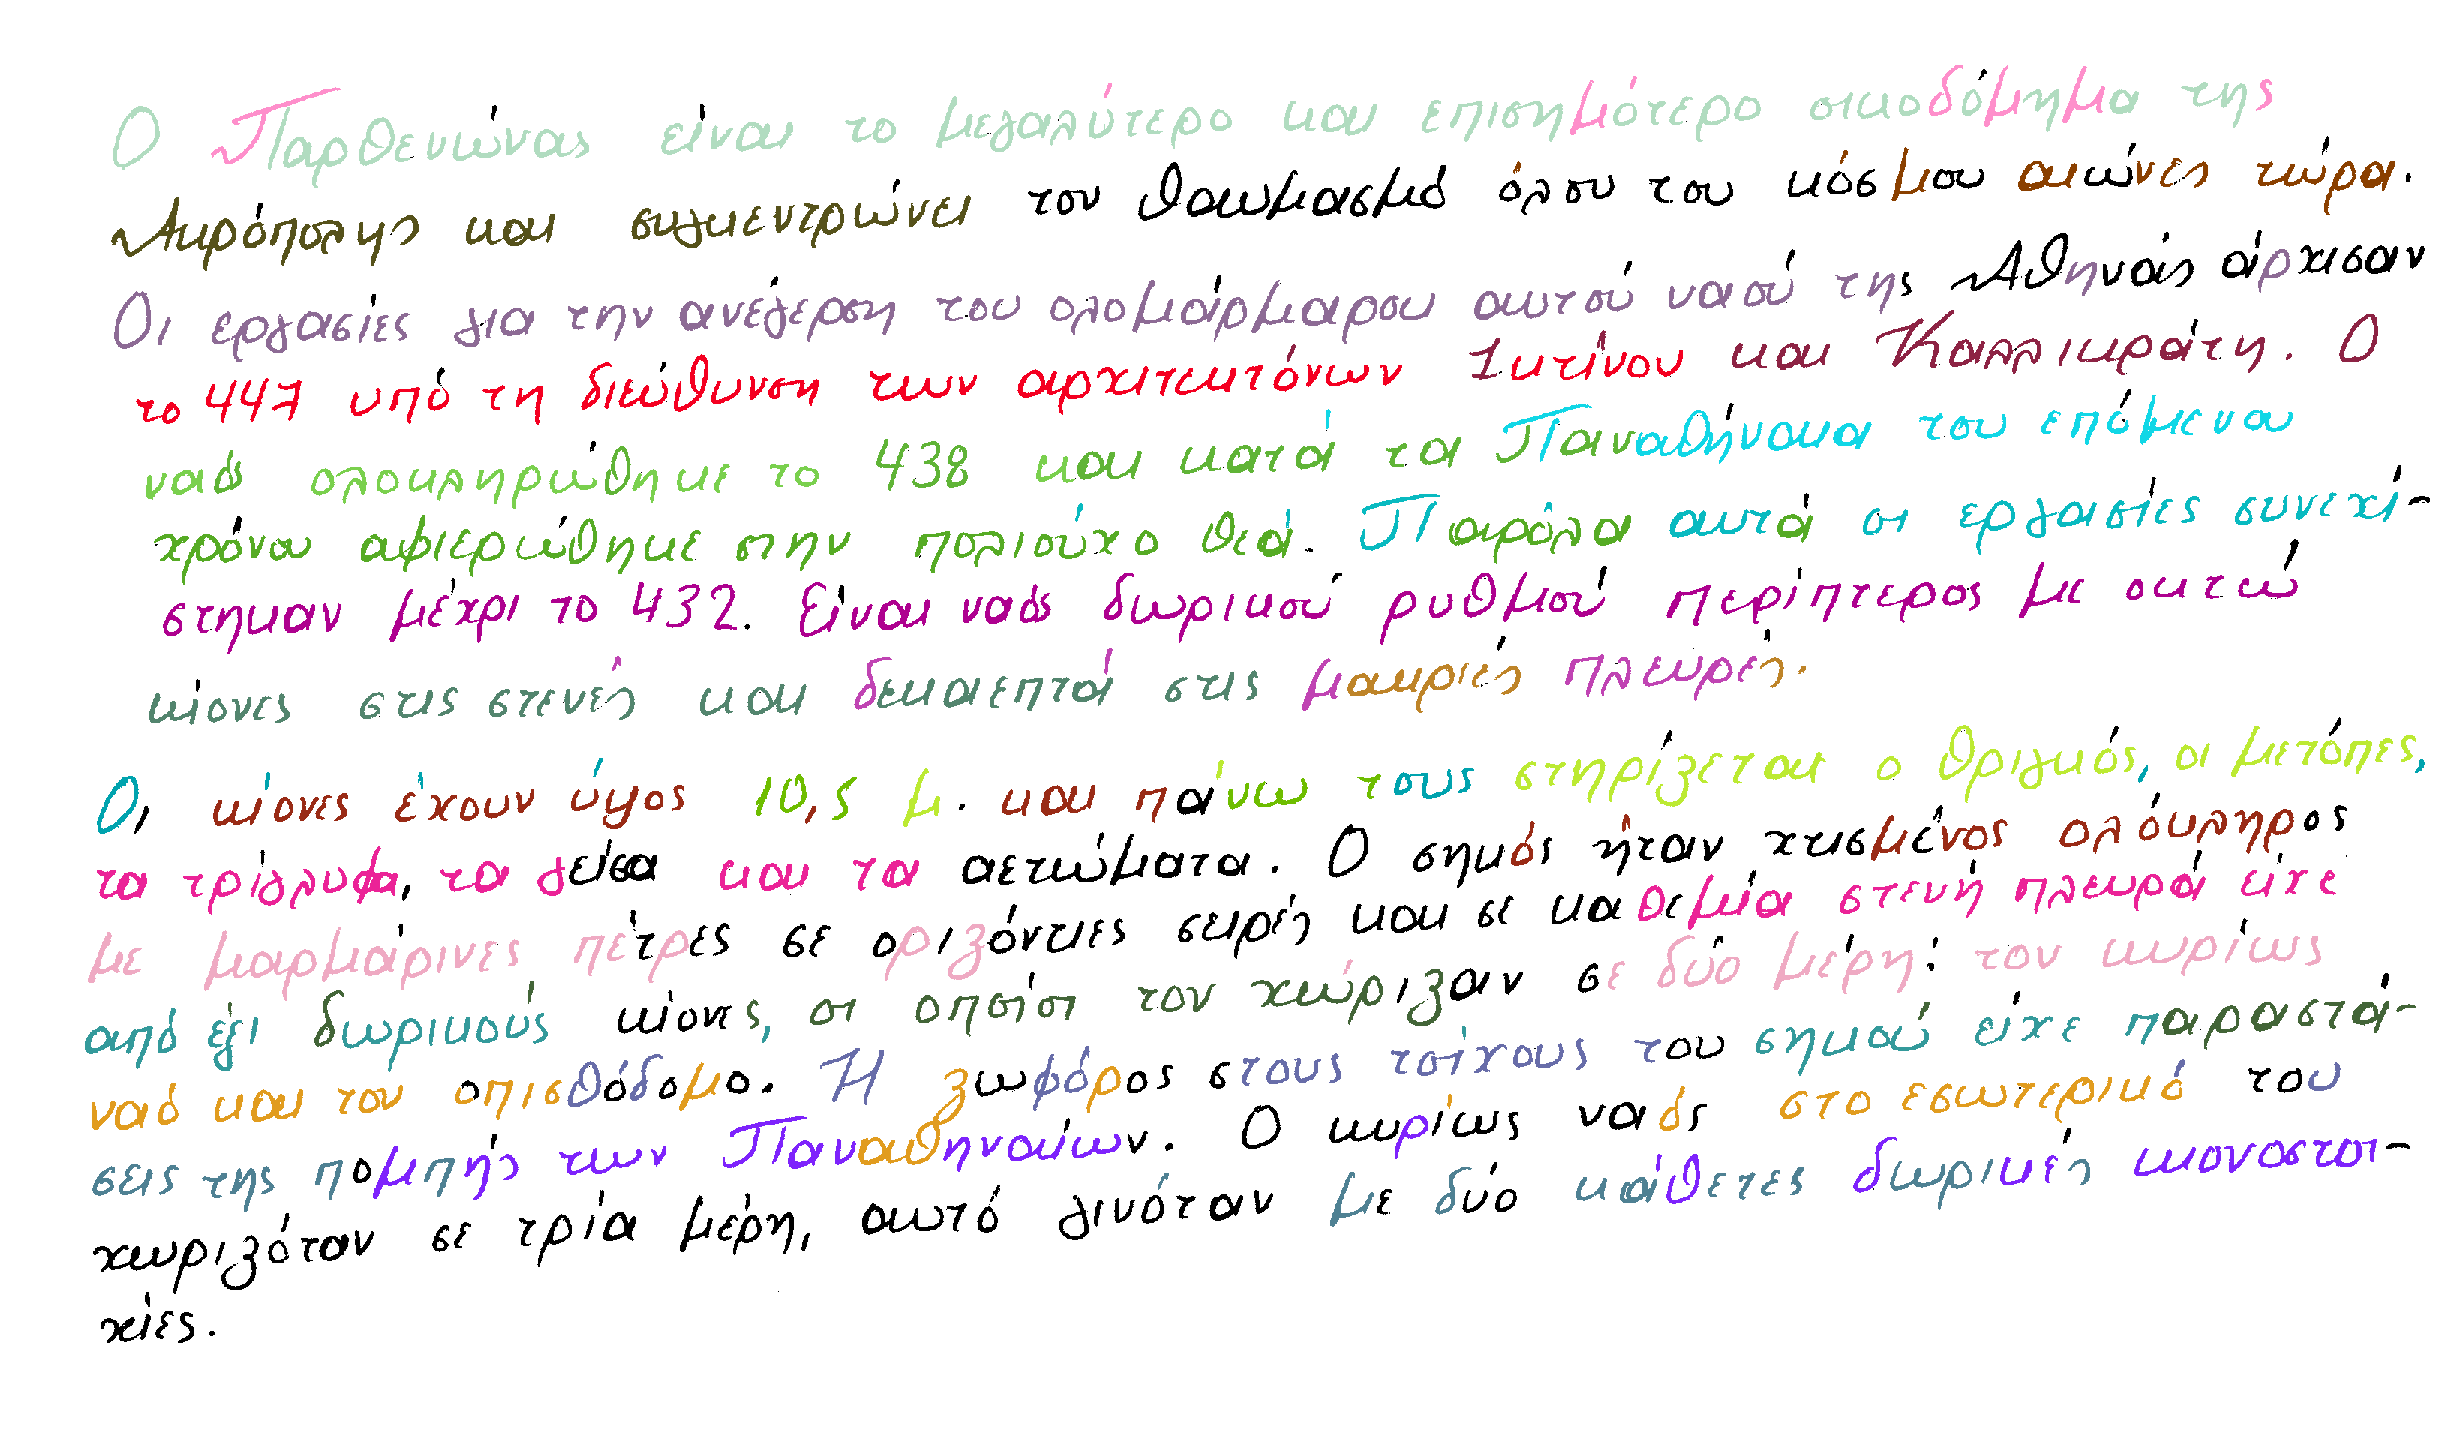 Ο Παρθενώνας είναι το μεγαλύτερο και επισημότερο οικοδόμημα της
Ακρόπολης και συγκεντρώνει τον θαυμασμό όλου του κόσμου αιώνες τώρα.
Οι εργασίες για την ανέγερση του ολομάρμαρου αυτού ναού της Αθηνάς άρχισαν
το 447 υπό τη διεύθυνση των αρχιτεκτόνων Ικτίνου και Καλλικράτη. Ο
ναός ολοκληρώθηκε το 438 και κατά τα Παναθήναια του επόμενου
χρόνου αφιερώθηκε στην πολιούχο θεά. Παρόλα αυτά οι εργασίες συνεχί-
στηκαν μέχρι το 432. Είναι ναός δωρικού ρυθμού περίπτερος με οκτώ
κίονες στις στενές και δεκαεπτά στις μακριές πλευρές.
Οι κίονες έχουν ύψος 10,5 μ. και πάνω τους στηρίζεται ο θριγκός, οι μετόπες,
τα τρίγλυφα, τα γείσα και τα αετώματα. Ο σηκός ήταν χτισμένος ολόκληρος
με μαρμάρινες πέτρες σε οριζόντιες σειρές και σε καθεμία στενή πλευρά είχε
από έξι δωρικούς κίονες, οι οποίοι τον χώριζαν σε δύο μέρη: τον κυρίως
ναό και τον οπισθόδομο. Η ζωφόρος στους τοίχους του σηκού είχε παραστά-
σεις της πομπής των Παναθηναίων. Ο κυρίως ναός στο εσωτερικό του
χωριζόταν σε τρία μέρη, αυτό γινόταν με δύο κάθετες δωρικές κιονοστοι-
χίες.